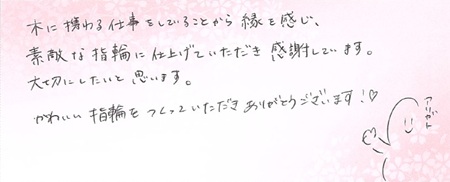 木に携わる仕事をしていることから縁を感じ、
素敵な指輪に仕上げていただき感謝しています。
大切にしたいと思います。
かわいい指輪をつくっていただきありがとうございます!♡
アリガト